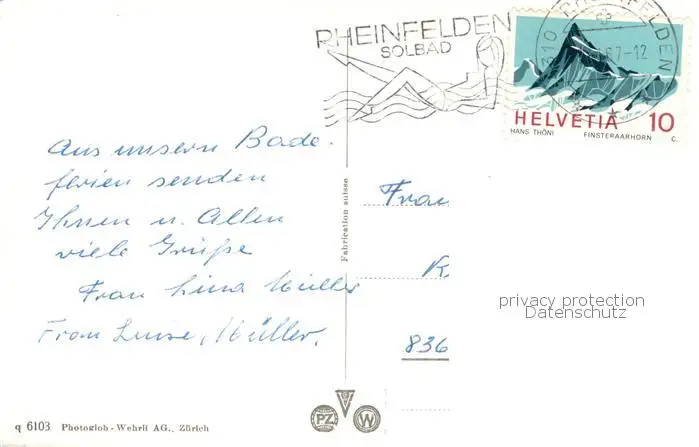 RHEINFELDEN
SOLBAD
RHEINFELDEN
4310
67-12
HELVETIA 10
HANS THÖNI FINSTERAARHORN C.
Aus unsern Bade-
ferien senden
Ihnen u. Allen
viele Grüße
Frau Lina Müller
Frau Luise, Müller.
Fabrication suisse
Frau
K.
836
privacy protection
Datenschutz
PZ V W
q 6103 Photoglob-Wehrli AG., Zürich